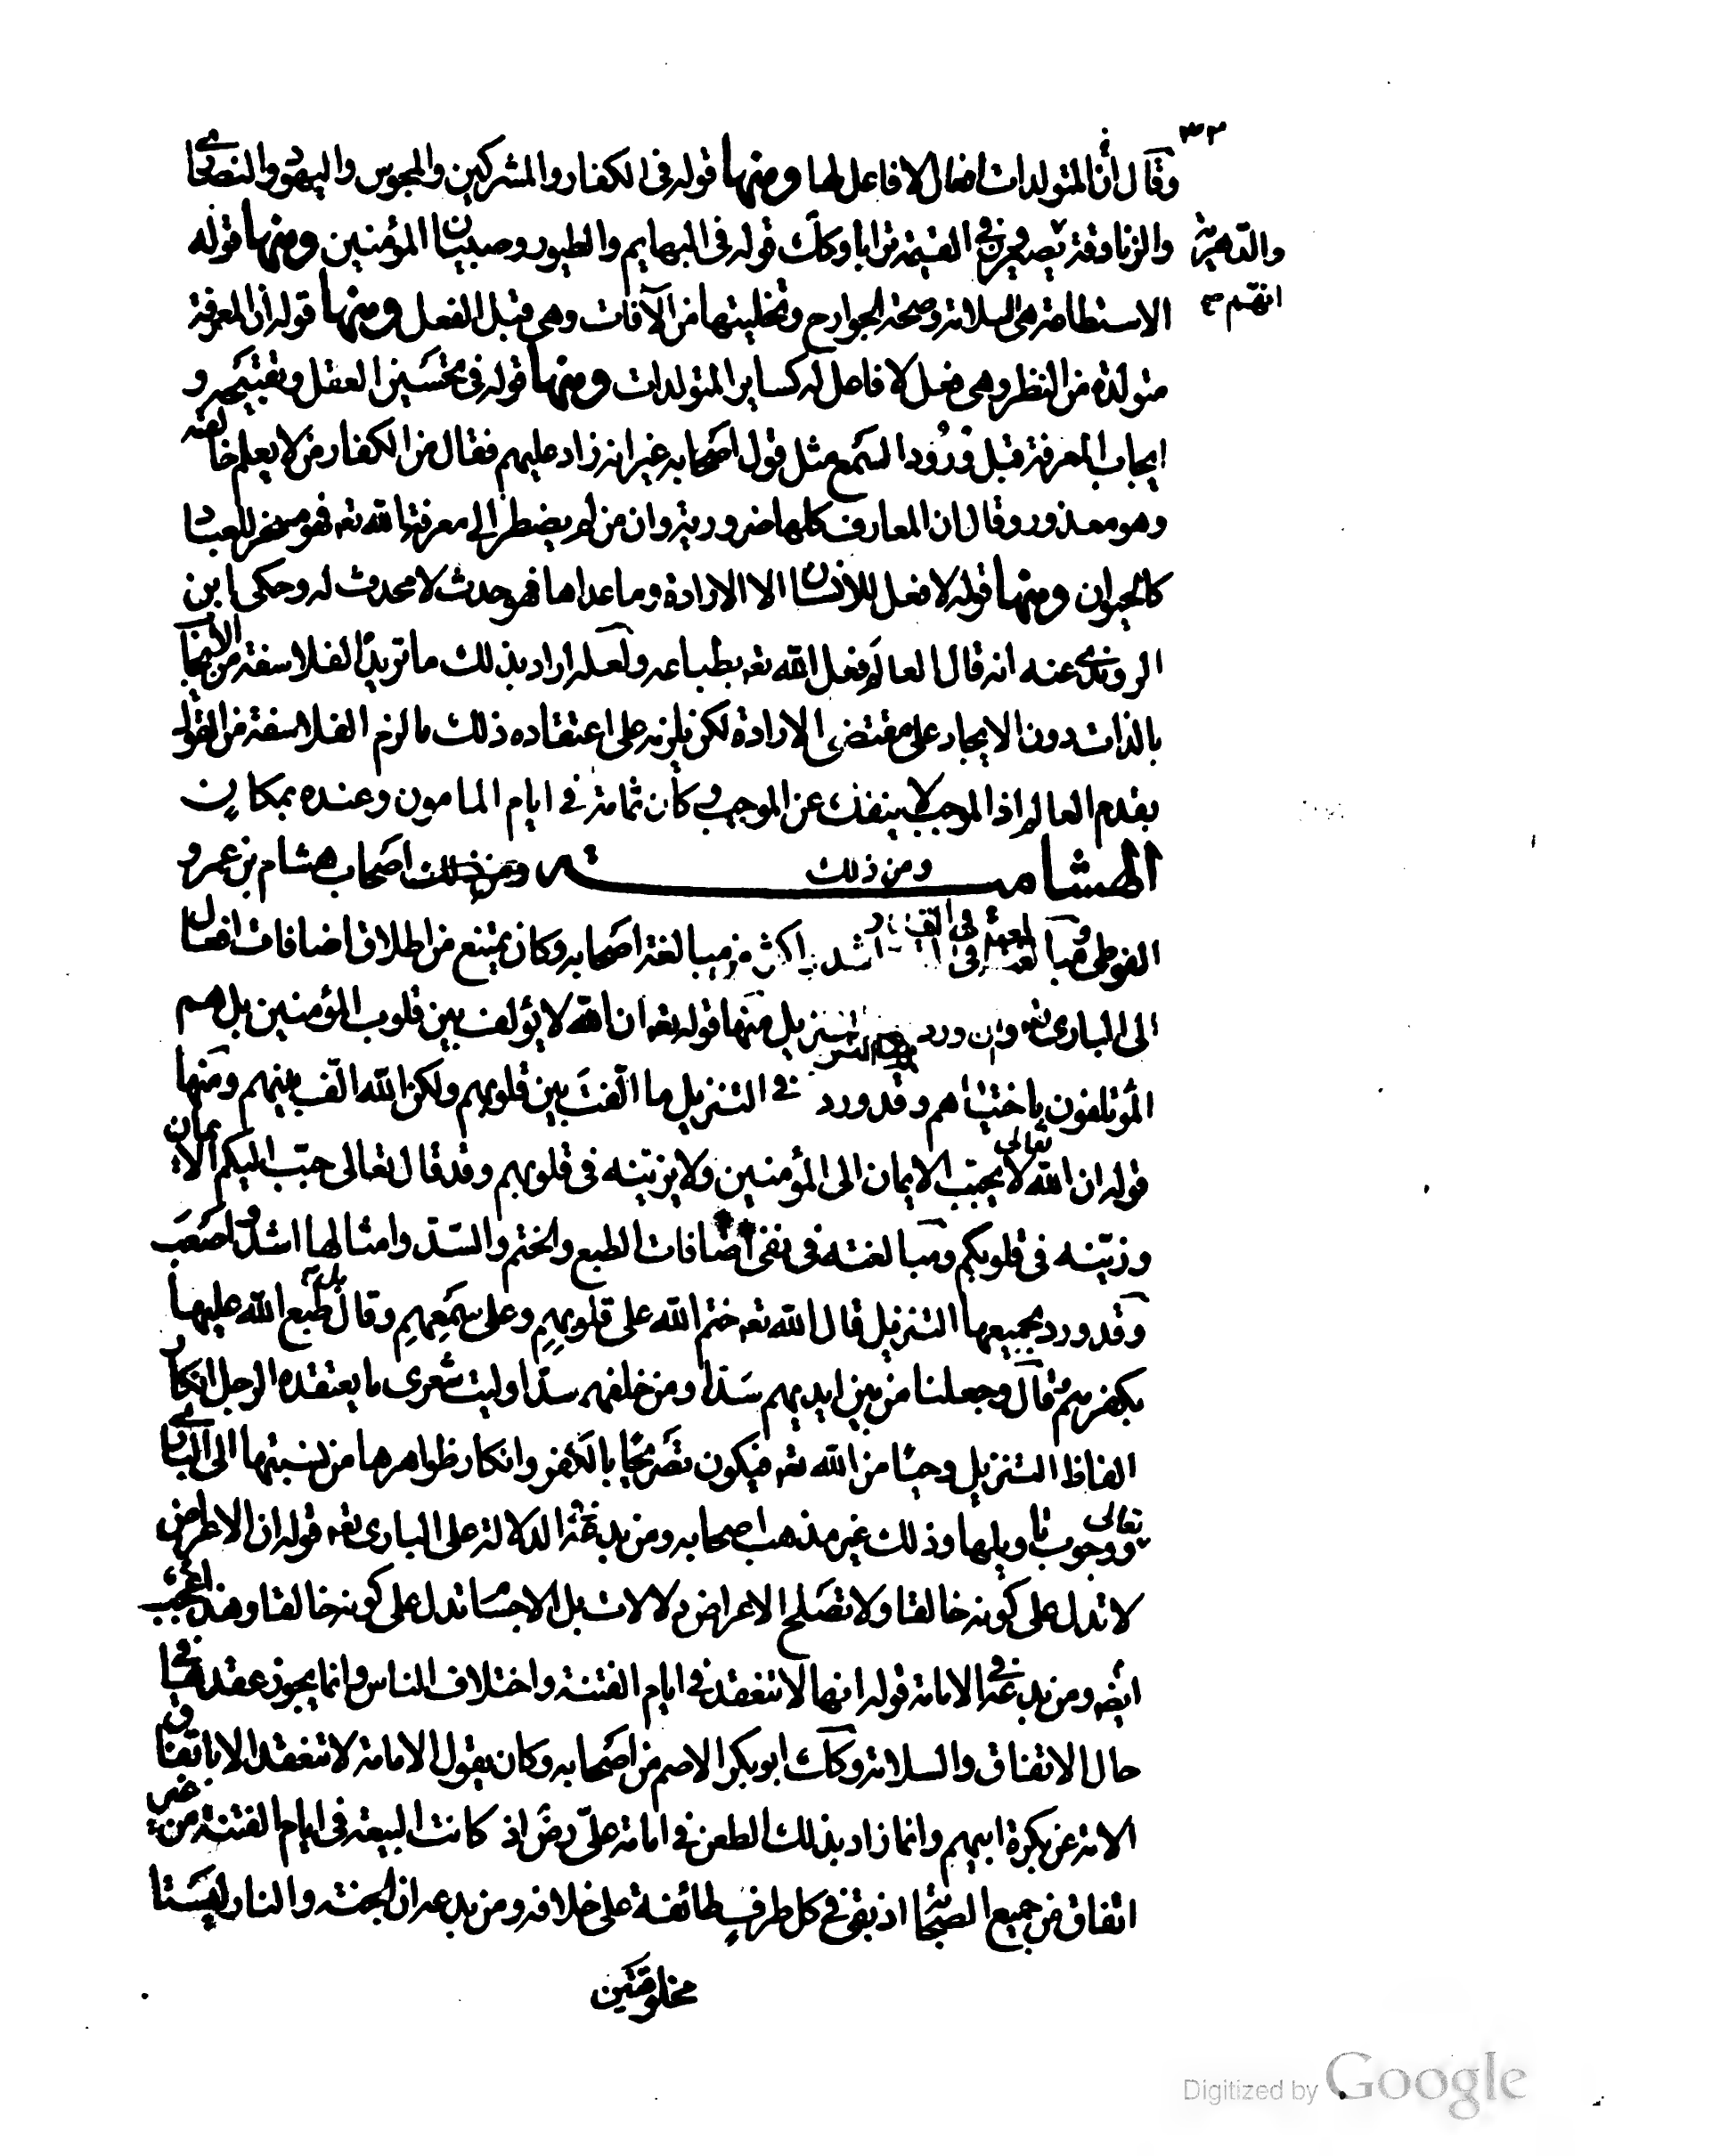 ٣٢
وقال ان المتولدات افعال لا فاعل لها ومنها قوله في الكفار والمشركين والمجوس واليهود والنصارى
والدهرية
والزنادقة يصيرون في القيمة ترابا وكك قوله في البهايم والطيور وصبيان المؤمنين ومنها قوله
انهم
الاستطاعة هي السلامة وصحة الجوارح وتخليتها من الآفات وهي قبل الفعل ومنها قوله ان المعرفة
متولدة من النظر وهي فعل لا فاعل له كساير المتولدات ومنها قوله في تحسين العقل وتقبيحه و
ايجاب المعرفة قبل ورود السمع مثل قول اصحابه غير انه زاد عليهم فقال من الكفار من لا يعلم خالقه
وهو معذور وقال ان المعارف كلها ضرورية وان من لم يضطر الى معرفة الله تعه فهو مسخر للعباد
كالحيوان ومنها قوله لا فعل للانسان الا الارادة وما عداها فهو حدث لا محدث له وحكى ابن
الروندى عنه انه قال العالم فعل الله تعه بطباعه ولعله اراد بذلك ما تريد الفلاسفة من الايجاب
بالذات دون الايجاد على مقتضى الارادة لكن يلزمه على اعتقاده ذلك ما لزم الفلاسفة من القول
بقدم العالم اذ الموجب لا ينفك عن الموجب وكان ثمامة في ايام المامون وعنده بمكان
الهشامية ومن ذلك اصحاب هشام بن عمرو
الفوطى ومبالغته في القدر اشد واكثر من مبالغة اصحابه وكان يمتنع من اطلاق اضافات افعال
الى البارى تعه وان ورد بها التنزيل منها قوله تعه ان الله لا يؤلف بين قلوب المؤمنين بل هم
المؤتلفون باختيارهم وقد ورد في التنزيل ما الّفت بين قلوبهم ولكن الله الّف بينهم ومنها
قوله ان الله تعالى لا يحبب الايمان الى المؤمنين ولا يزينه في قلوبهم وقد قال تعالى حبّب اليكم الايمان
وزيّنه في قلوبكم ومبالغته في نفى اضافات الطبع والختم والسدّ وامثالها اشد واصعب
وقد ورد بجميعها التنزيل قال الله تعه ختم الله على قلوبهم وعلى سمعهم وقال بل طبع الله عليها
بكفرهم وقال وجعلنا من بين ايديهم سدّا ومن خلفهم سدّا وليت شعرى ما يعتقده الرجل انكار
الفاظ التنزيل وحيًا من الله تعه فيكون تصريحًا بالكفر وانكار ظواهرها من نسبتها الى البارى
تعالى ووجوب تاويلها وذلك غير مذهب اصحابه ومن بدعته في الدلالة على البارى تعه قوله ان الاعراض
لا تدل على كونه خالقا ولا تصلح الاعراض دلالات بل الاجسام تدل على كونه خالقا وهذا عجب
ايضه ومن بدعته في الامامة قوله انها لا تنعقد في ايام الفتنة واختلاف الناس وانما يجوز عقدها في
حال الاتفاق والسلامة وكك ابو بكر الاصم من اصحابه وكان يقول الامامة لا تنعقد الا باتفاق
الامة عن بكرة ابيهم وانما زاد بذلك الطعن في امامة علىّ رضَ اذ كانت البيعة في ايام الفتنة من غير
اتفاق من جميع الصحابة اذ بقى في كل طرفٍ طائفة على خلافه ومن بدعه ان الجنة والنار ليستا
مخلوقتين
Digitized by Google